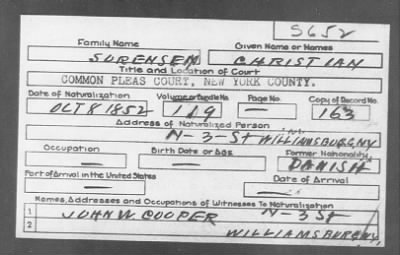 S652
Family Name Given Name or Names
SORENSEN CHRISTIAN
Title and Location of Court
COMMON PLEAS COURT, NEW YORK COUNTY.
Date of Naturalization Volume or Bundle No. Page No. Copy of Record No.
OCT 8 1852 119 — 163
Address of Naturalized Person
N-3-St WILLIAMSBURG, NY
Occupation Birth Date or Age Former Nationality
— — DANISH
Port of Arrival in the United States Date of Arrival
— —
Names, Addresses and Occupations of Witnesses To Naturalization
1 JOHN W. COOPER N-3 St
2 WILLIAMSBURG NY,